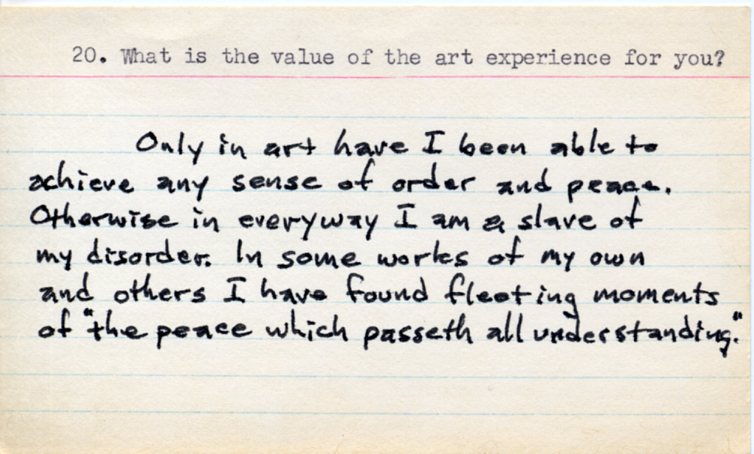 20. What is the value of the art experience for you?
Only in art have I been able to
achieve any sense of order and peace.
Otherwise in everyway I am a slave of
my disorder. In some works of my own
and others I have found fleeting moments
of "the peace which passeth all understanding."